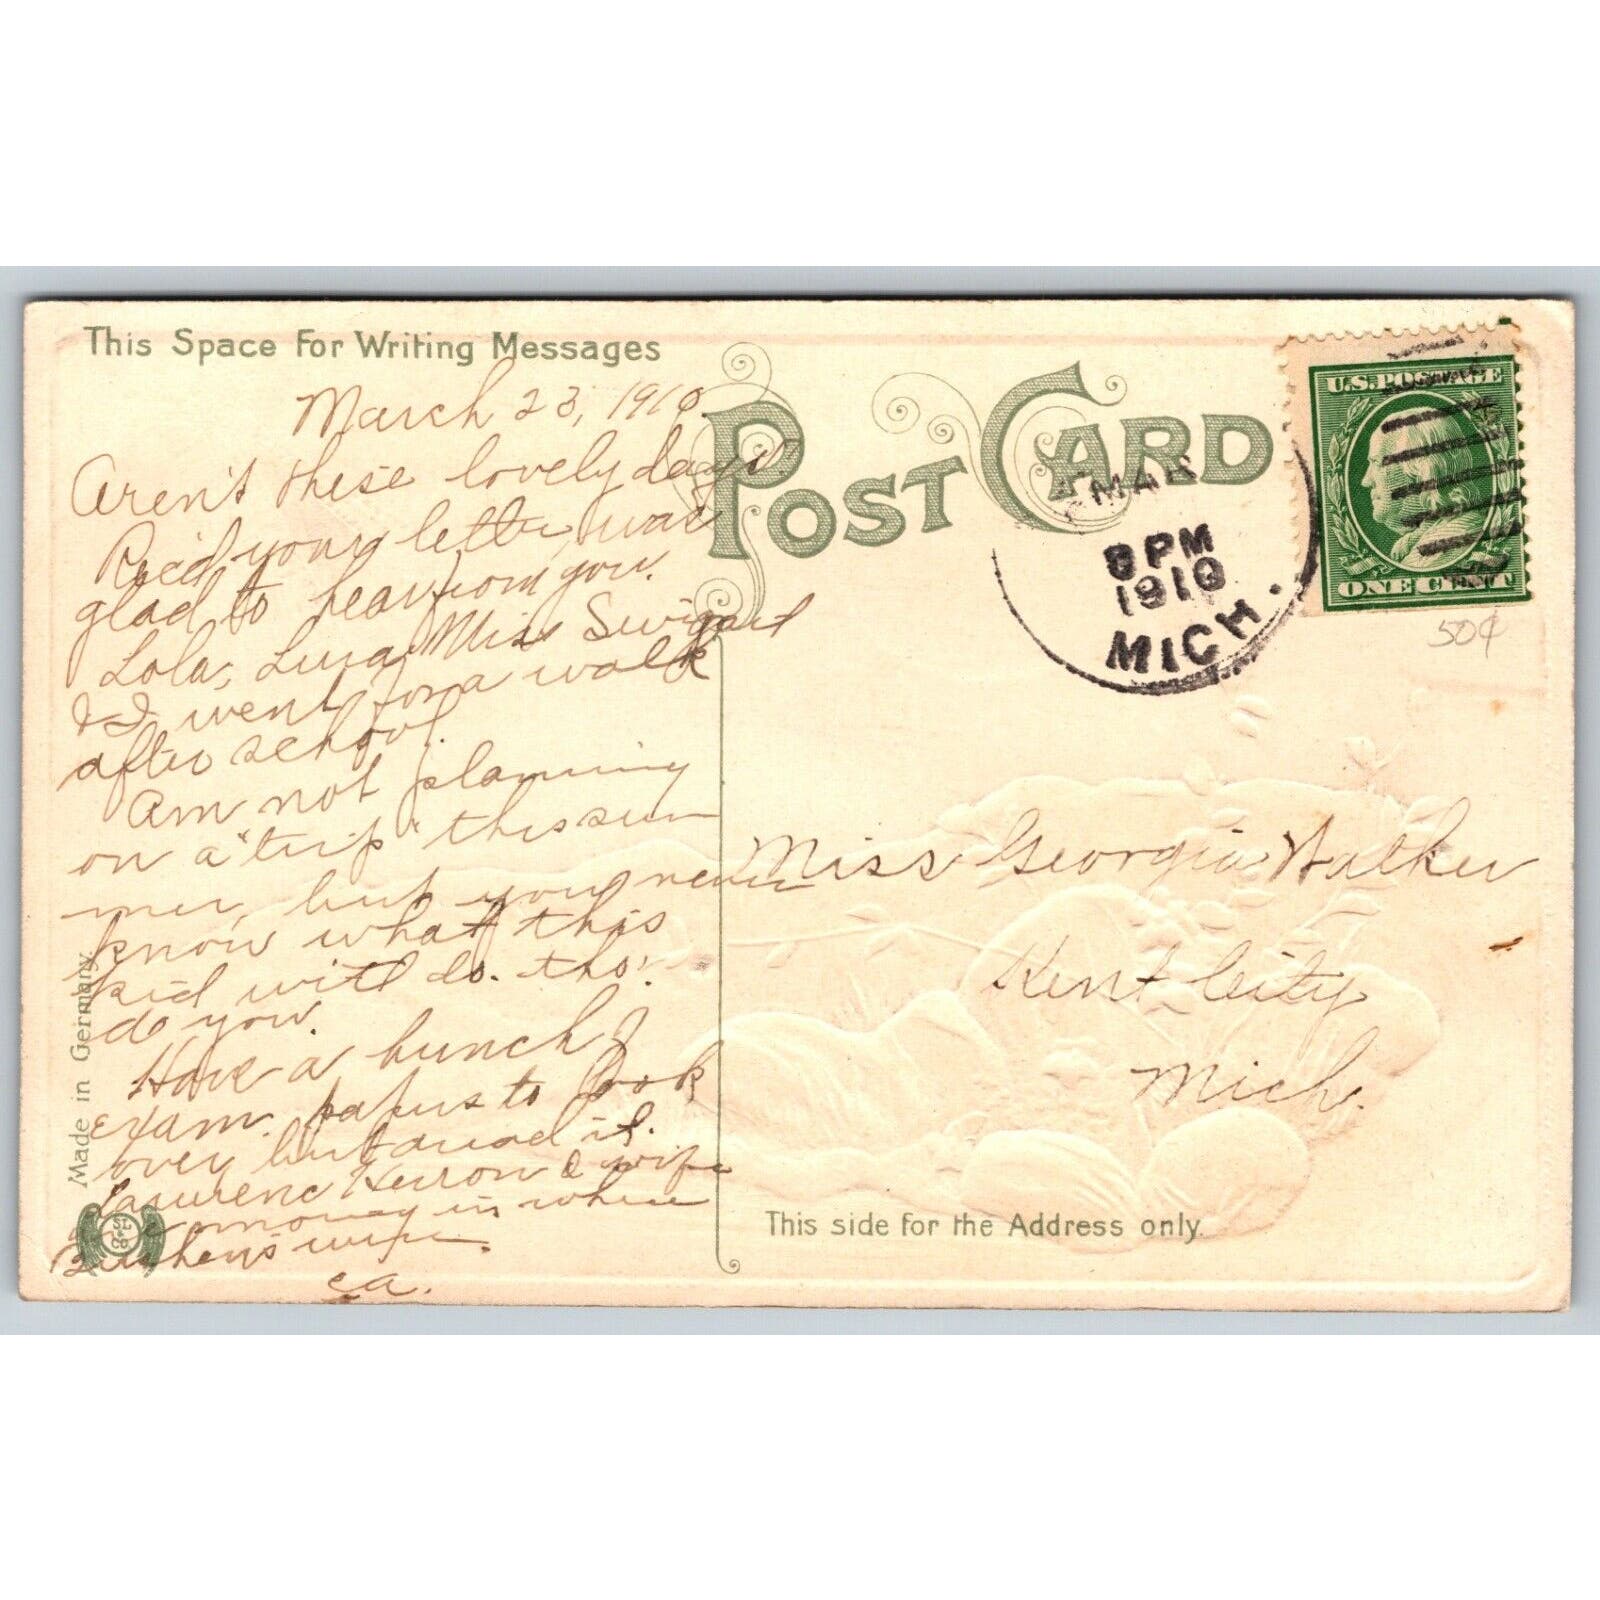 This Space For Writing Messages
March 23, 1910
Aren't these lovely days
Rec'd your letter, was
glad to hear from you.
Lola, Lura, Miss Swigart
& I went for a walk
after school.
Am not planning
on a "trip" this sum
mer, but you never
know what this
kid will do. tho!
do you.
Have a bunch of
exam. papers to look
over but dread it.
Lawurenc Herron & wife
money in where
wife.
ca.
Made in Germany
POST CARD
MAR
8 PM
1910
MICH.
U.S. POSTAGE
ONE CENT
50¢
Miss Georgia Walker
Kent City
Mich.
This side for the Address only.